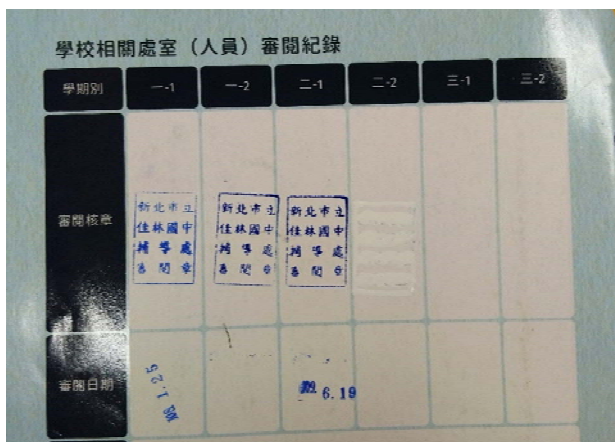 學校相關處室（人員）審閱紀錄
學期別 一-1 一-2 二-1 二-2 三-1 三-2
審閱核章
新北市立
佳林國中
輔導處
審閱章
新北市立
佳林國中
輔導處
審閱章
新北市立
佳林國中
輔導處
審閱章
審閱日期
108.1.25
6.19